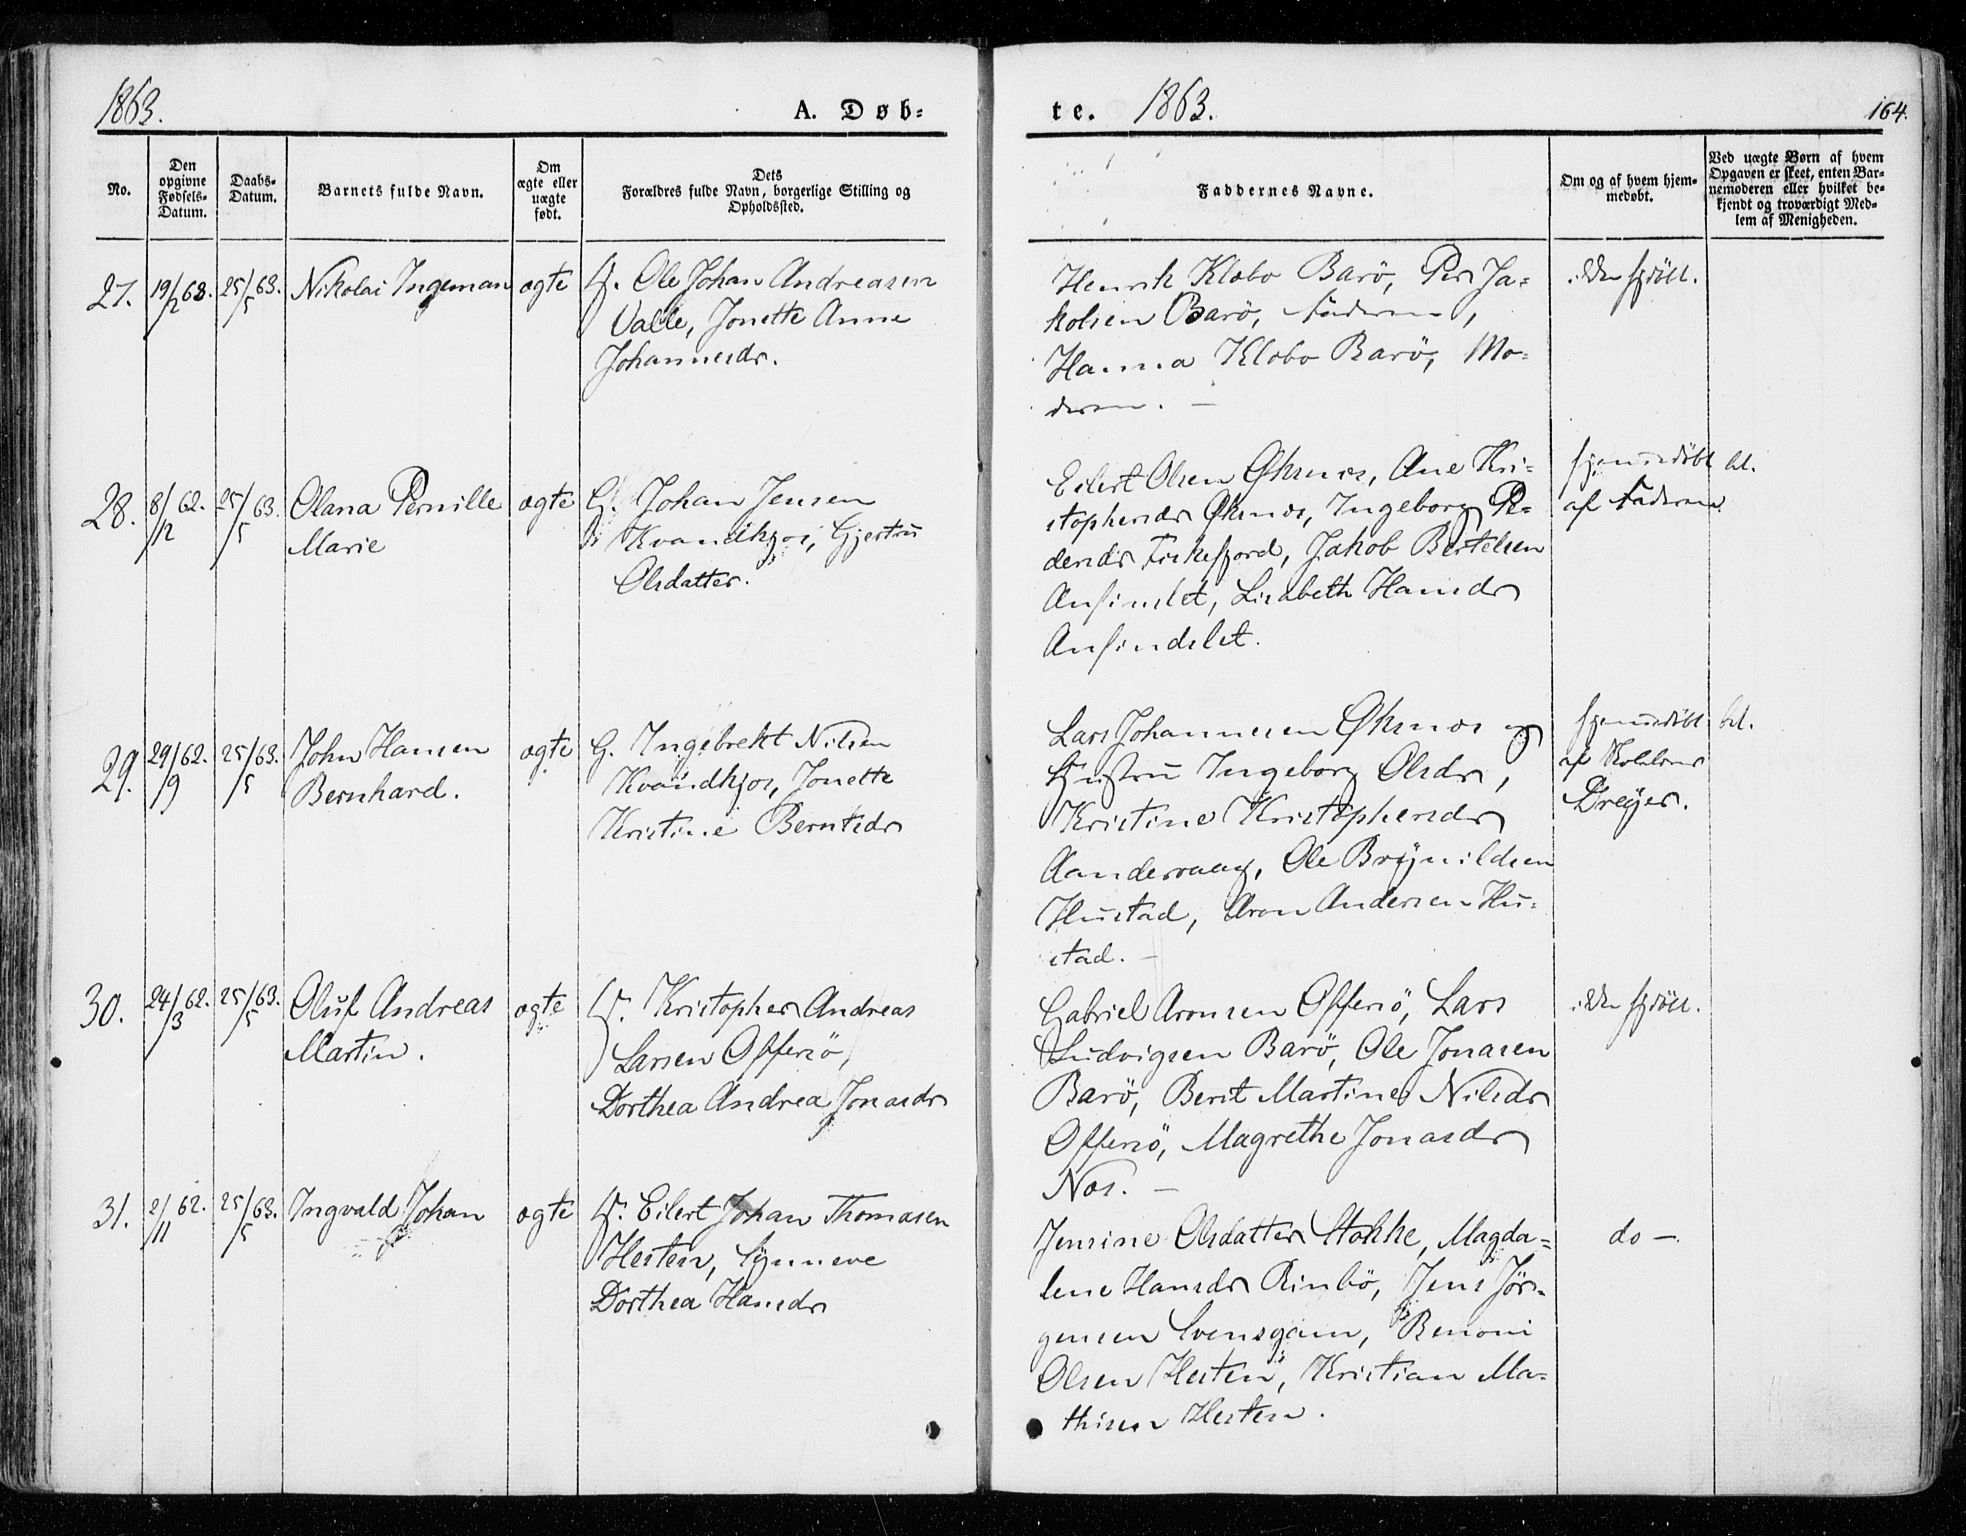 1863.
A. Døb-
te. 1863.
164.
No.
Den
opgivne
Fødsels-
Datum.
Daabs-
Datum.
Barnets fulde Navn.
Om
ægte eller
uægte
født.
Dets
Forældres fulde Navn, borgerlige Stilling og
Opholdssted.
Faddernes Navne.
Om og af hvem hjem-
medøbt.
Ved uægte Børn af hvem
Opgaven er skeet, enten Bar-
nemoderen eller hvilket be-
kjendt og troværdigt Med-
lem af Menigheden.
27. 19/2 63. 25/5 63. Nikolai Ingeman ægte Ole Johan Andreasen
Valle, Jonette Anne
Johannesdr.
Henrik Klæbo Barö, Per Ja-
kobsen Barö, Faderen,
Hanna Klæbo Barö, Mo-
deren. —
28. 8/12 62. 25/5 63. Olana Pernille
Marie
ægte G. Johan Jensen
Kvandkjos, Gjertru
Olsdatter.
Eilert Olsen Öksnes, Ane Kri-
stophersdr Öksnes, Ingeborg Pe-
dersdr Fiskefjord, Jakob Bertelsen
Anfindslet, Lisabeth Hansdr
Anfindslet.
hjemmedöbt
af Faderen
bl.
29. 29/9 62. 25/5 63. John Hansen
Bernhard.
ægte G. Ingebrekt Nilsen
Kvandkjos, Jonette
Kristine Berntsdr
Lars Johannesen Öksnes og
Hustru Ingeborg Olsdr,
Kristine Kristophersdr
Aandervaag, Ole Brÿnildsen
Hustad, Aron Andersen Hu-
stad. —
hjemmedöbt
af
Dreÿer.
bl.
30. 24/3 62. 25/5 63. Oluf Andreas
Martin.
ægte Kristopher Andreas
Larsen Offersö,
Dorthea Andrea Jonasdr
Gabriel Aronsen Offersö, Lars
Ludvigsen Barö, Ole Jonasen
Barö, Berit Martine Nilsdr
Offersö, Magrethe Jonasdr
Nes. —
31. 2/11 62. 25/5 63. Ingvald Johan ægte Eilert Johan Thomasen
Hesten, Synneve
Dorthea Hansdr
Jensine Olsdatter Stokke, Magda-
lene Hansdr Rinbö, Jens Jör-
gensen Svensgam, Benoni
Olsen Hesten, Kristian Ma-
thisen Hesten.
do —